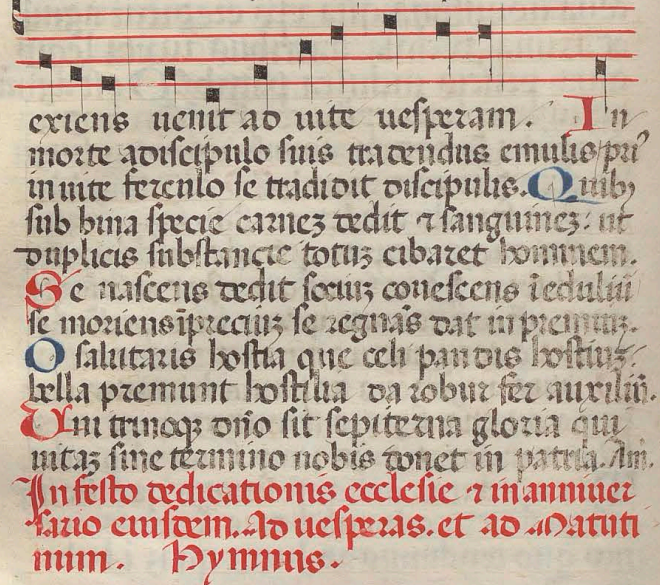 exiens uenit ad uite uesperam. In
morte a discipulo suis tradendus emulis pri᷒
in uite ferculo se tradidit discipulis. Quibꝫ
sub bina specie carneꝫ dedit ⁊ sanguineꝫ: ut
duplicis substancie totuꝫ cibaret hominem.
Se nascens dedit sociuꝫ conescens ī eduliū
se moriens ī preciuꝫ se regnās dat in premiuꝫ.
O salutaris hostia que celi pandis hostiuꝫ:
bella premunt hostilia da robur fer auxiliū.
Uni trinoqꝫ dn̄o sit sēpiterna gloria qui
uitaꝫ sine termino nobis donet in patria. Am̄.
In festo dedicationis ecclesie ⁊ in anniuer
sario eiusdem. Ad uesperas. et ad Matuti
num. Hymnus.